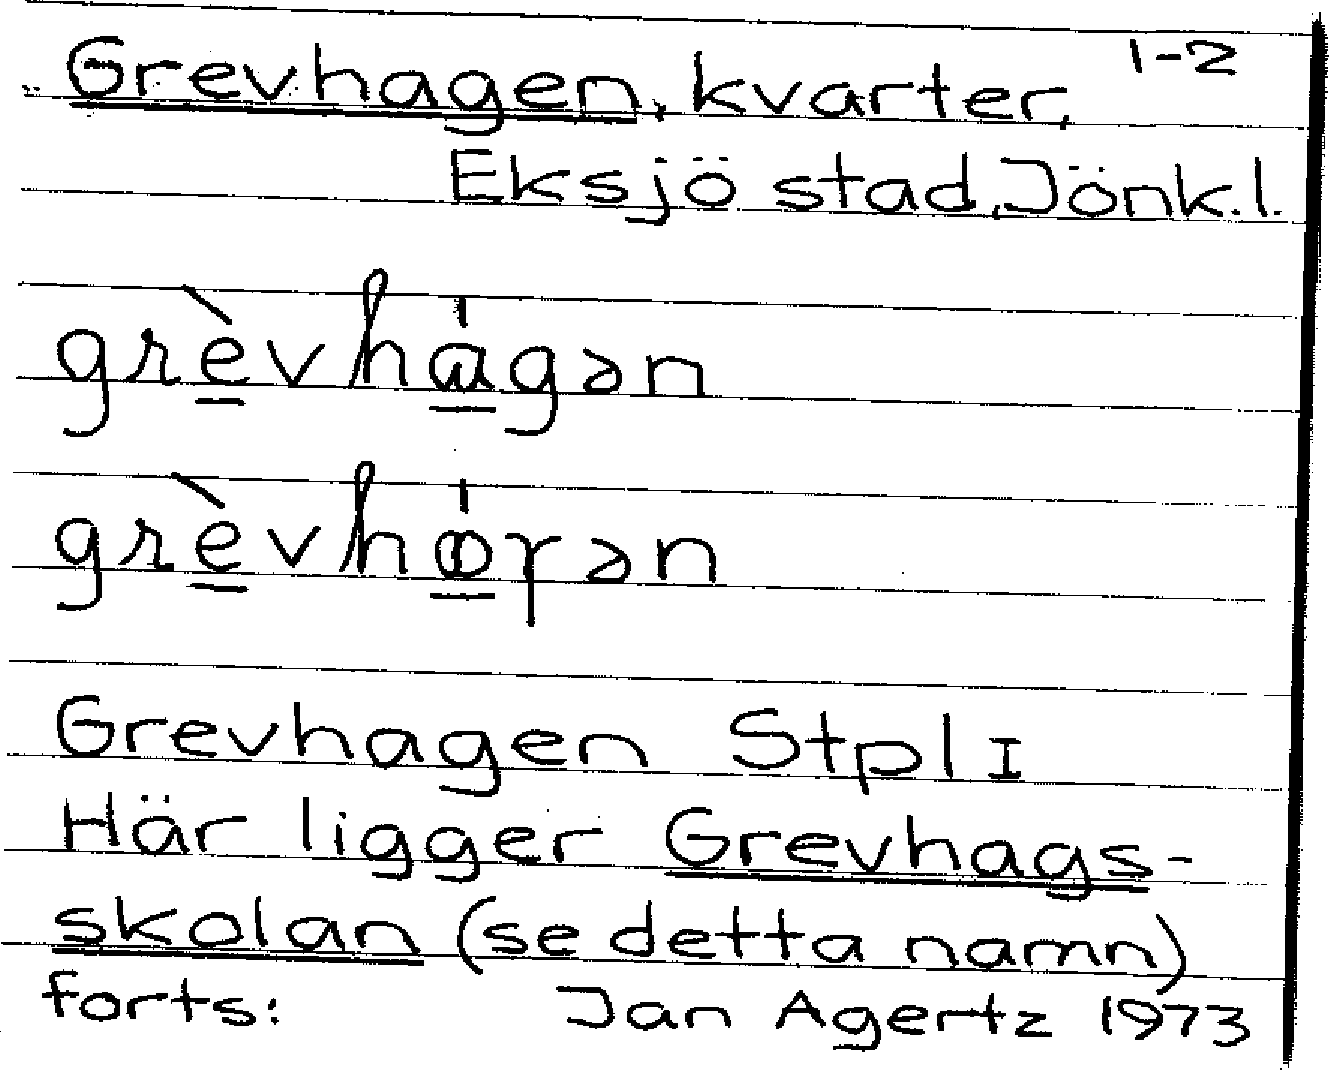 Grevhagen, kvarter, 1-2
Eksjö stad, Jönk.l.
grèvhág̱ən
grèvhóɤən
Grevhagen Stpl I
Här ligger Grevhags-
skolan (se detta namn)
forts: Jan Agertz 1973